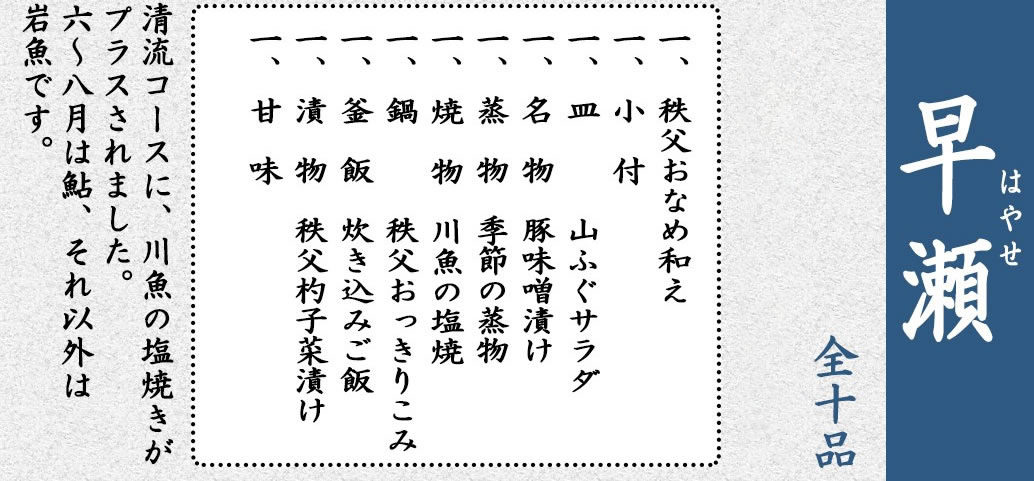 早瀬
はやせ
全十品
一、秩父おなめ和え
一、小付
一、皿 山ふぐサラダ
一、名物 豚味噌漬け
一、蒸物 季節の蒸物
一、焼物 川魚の塩焼
一、鍋 秩父おっきりこみ
一、釜飯 炊き込みご飯
一、漬物 秩父杓子菜漬け
一、甘味
清流コースに、川魚の塩焼きが
プラスされました。
六〜八月は鮎、それ以外は
岩魚です。